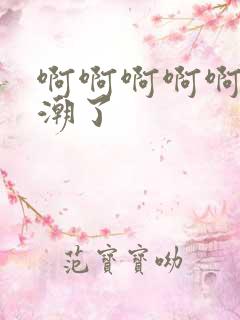 啊啊啊啊啊
潮了
范寶寶呦